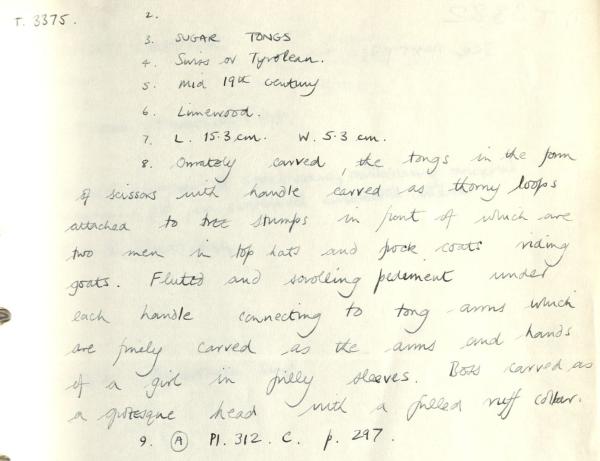 T. 3375.
2.
3. SUGAR TONGS
4. Swiss or Tyrolean.
5. Mid 19th century
6. Limewood.
7. L. 15.3 cm. W. 5.3 cm.
8. Ornately carved, the tongs in the form
of scissors with handle carved as thorny loops
attached to tree stumps in front of which are
two men in top hats and frock coats riding
goats. Fluted and scrolling pediment under
each handle connecting to tong arms which
are finely carved as the arms and hands
of a girl in frilly sleeves. Boss carved as
a grotesque head with a frilled ruff collar.
9. A Pl. 312. C. p. 297.